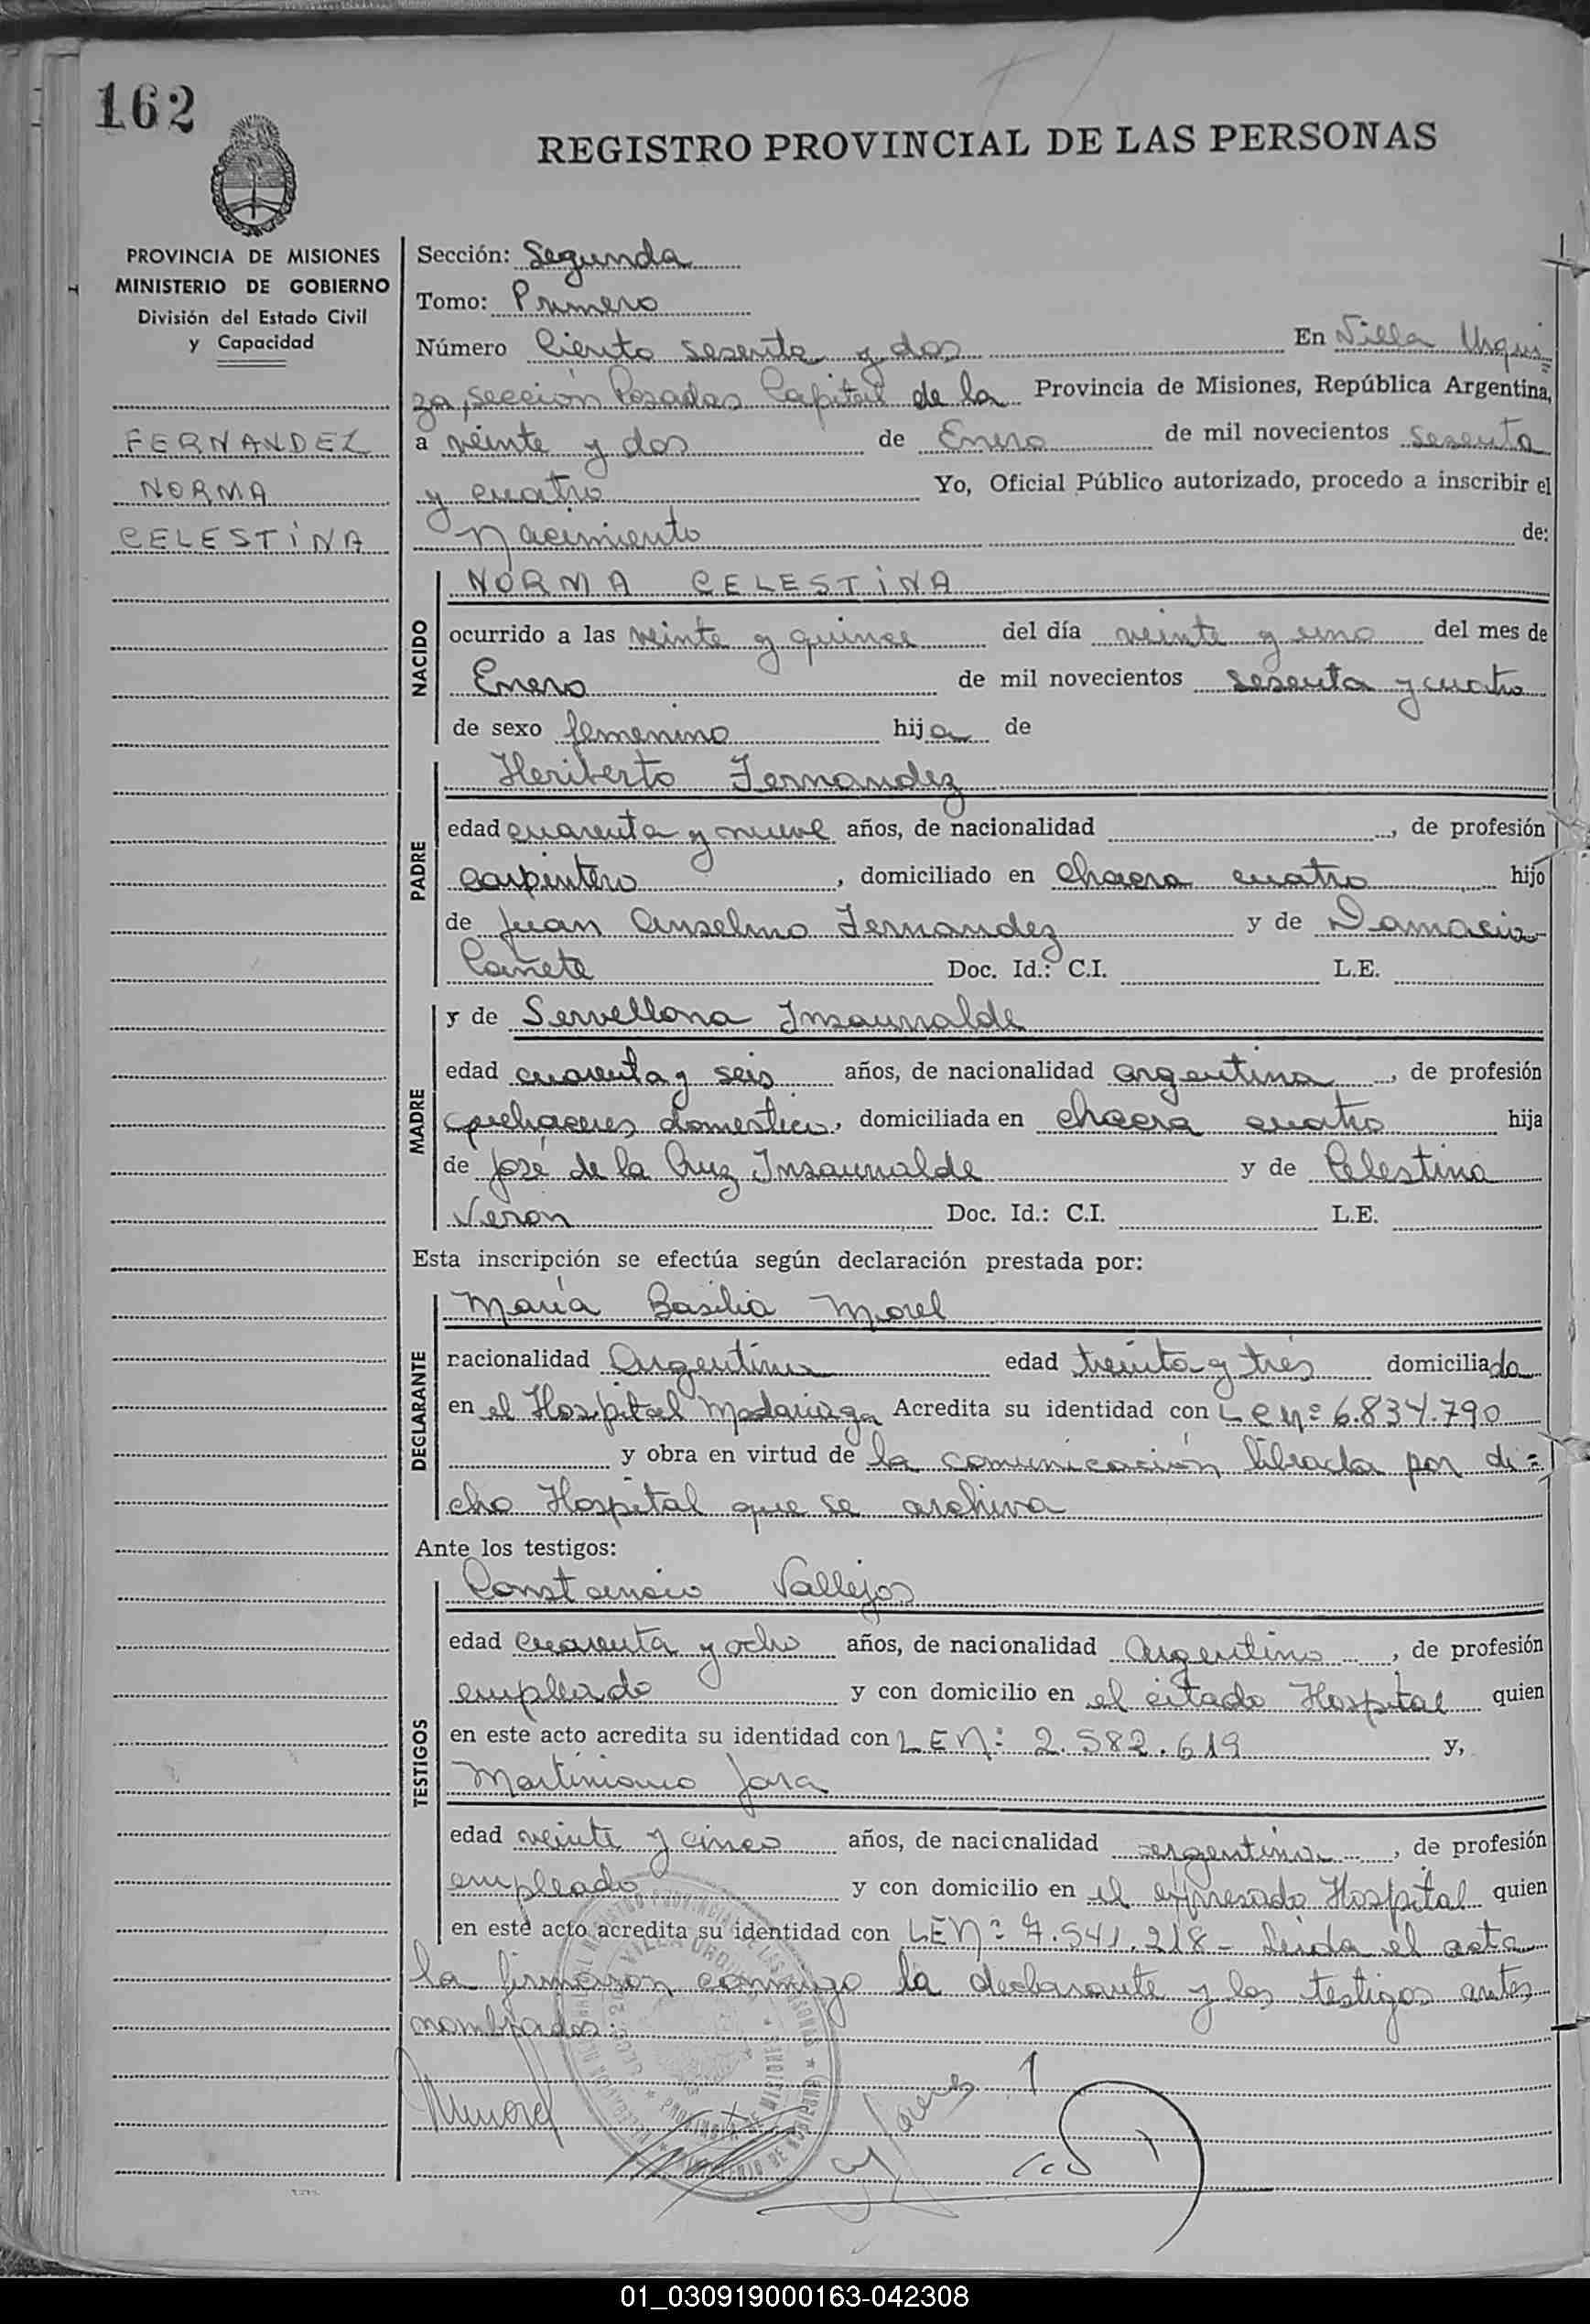 162
REGISTRO PROVINCIAL DE LAS PERSONAS
PROVINCIA DE MISIONES
MINISTERIO DE GOBIERNO
División del Estado Civil
y Capacidad
FERNANDEZ
NORMA
CELESTINA
Sección: Segunda
Tomo: Primero
Número Ciento sesenta y dos En Villa Urqui=
za, Sección Posadas Capital de la Provincia de Misiones, República Argentina,
a veinte y dos de Enero de mil novecientos sesenta
y cuatro Yo, Oficial Público autorizado, procedo a inscribir el
Nacimiento de:
NACIDO
NORMA CELESTINA
ocurrido a las veinte y quince del día veinte y uno del mes de
Enero de mil novecientos sesenta y cuatro
de sexo femenino hija de
PADRE
Heriberto Fernandez
edad cuarenta y nueve años, de nacionalidad , de profesión
carpintero , domiciliado en chacra cuatro hijo
de Juan Anselmo Fernandez y de Damacia
Cañete Doc. Id.: C.I. L.E.
MADRE
y de Servellona Insaurralde
edad cuarenta y seis años, de nacionalidad argentina , de profesión
quehaceres domestico, domiciliada en chacra cuatro hija
de José de la Cruz Insaurralde y de Celestina
Veron Doc. Id.: C.I. L.E.
Esta inscripción se efectúa según declaración prestada por:
DECLARANTE
María Basilia Morel
nacionalidad Argentina edad treinta y tres domiciliada
en el Hospital Madariaga Acredita su identidad con L e nº 6.834.790
y obra en virtud de la comunicación librada por di=
cho Hospital que se archiva
Ante los testigos:
TESTIGOS
Constancio Vallejos
edad cuarenta y ocho años, de nacionalidad Argentino , de profesión
empleado y con domicilio en el citado Hospital quien
en este acto acredita su identidad con L E Nº 2.582.619 y,
Martiniano Jara
edad veinte y cinco años, de nacionalidad argentina , de profesión
empleado y con domicilio en el expresado Hospital quien
en este acto acredita su identidad con LENº 7.541.218 - Leida el acta
la firmaron conmigo la declarante y los testigos antes
nombrados:
Mmorel
01_030919000163-042308